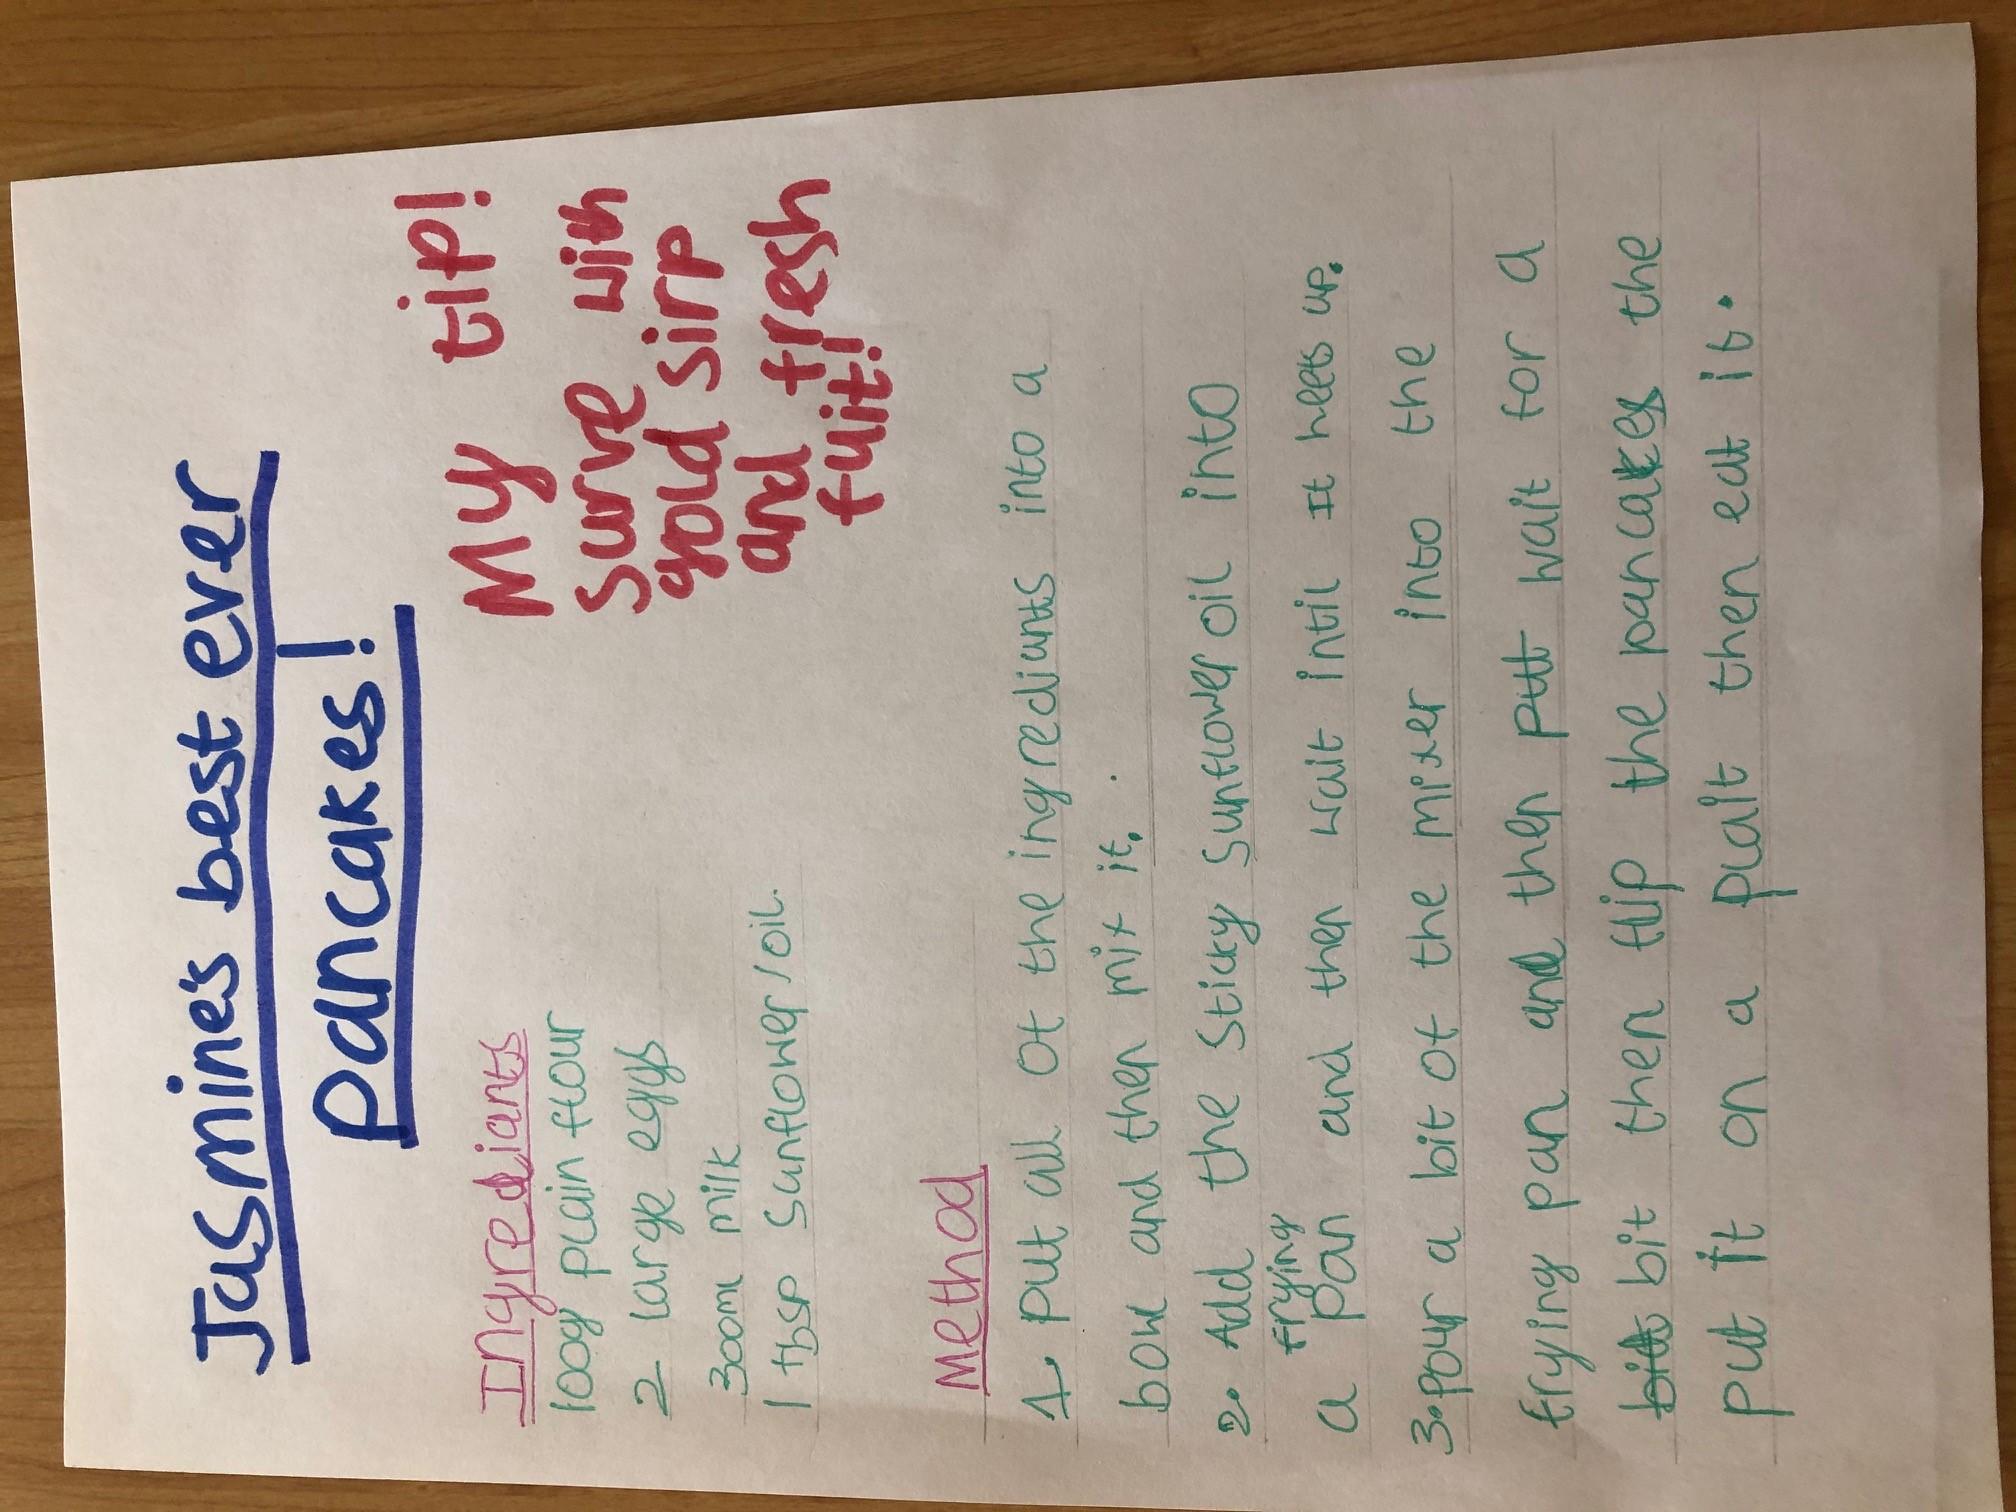 Jasmine's best ever
pancakes!
My tip!
Surve with
gold sirp
and fresh
fuit!
Ingrediants
100g plain flour
2 large eggs
300ml milk
1 tbsp sunflower/oil.
Method
1. Put all of the ingrediants into a
bowl and then mix it.
2. Add the sticky sunflower oil into
frying
a pan and then wait intil it heets up.
3. Pour a bit of the mixer into the
frying pan and then putt wait for a
bitt bit then flip the pancakes the
put it on a plait then eat it.